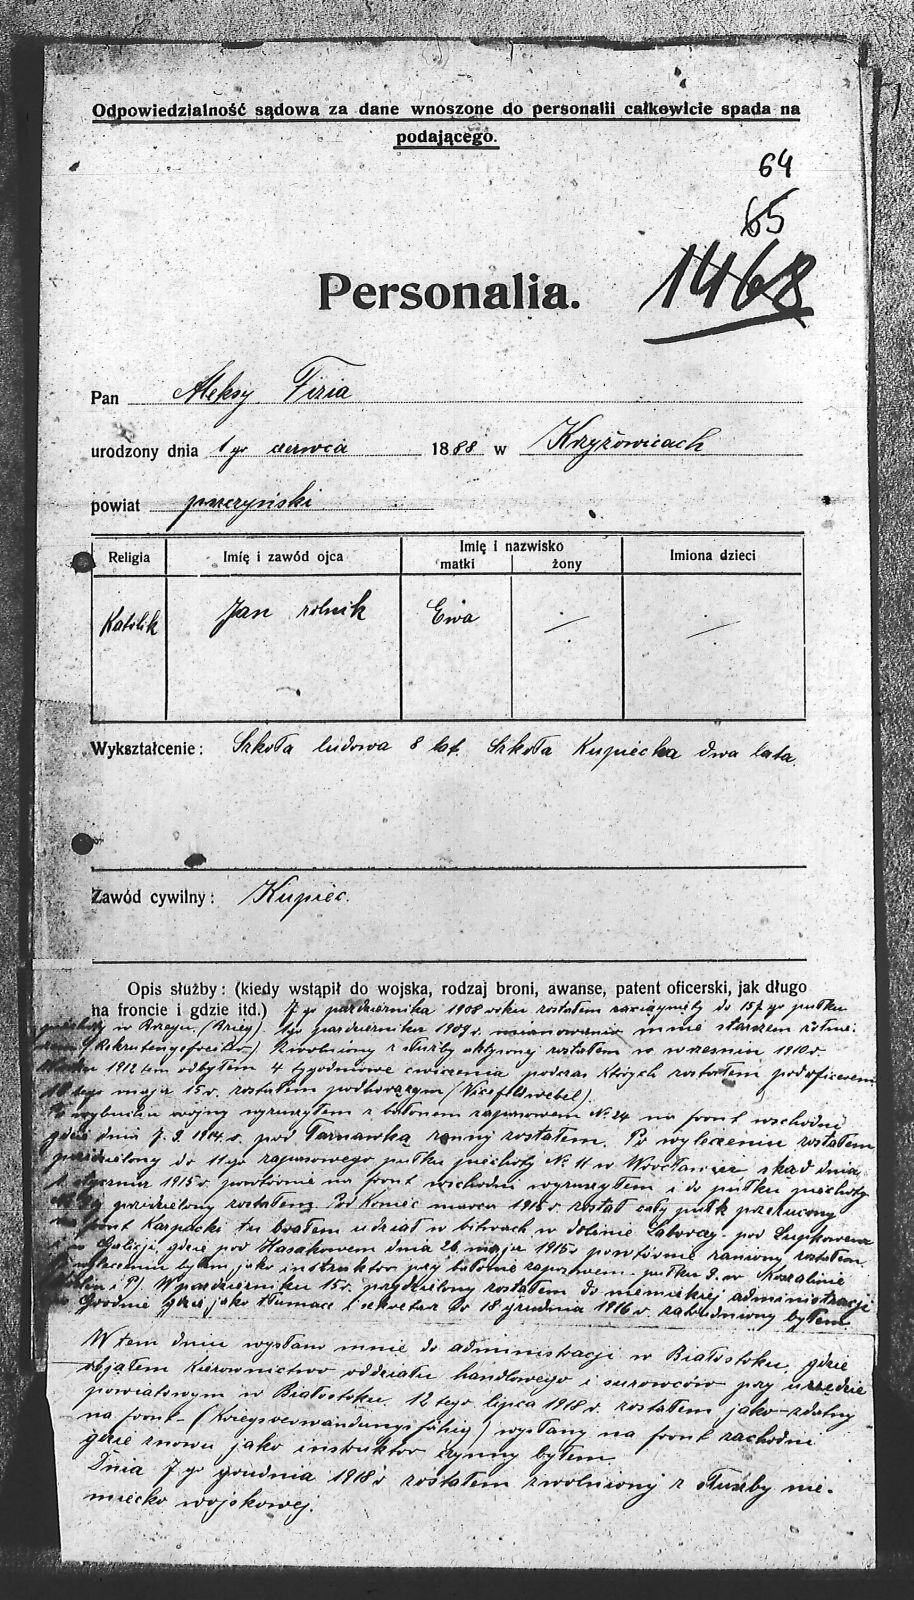 Odpowiedzialność sądowa za dane wnoszone do personalii całkowicie spada na
podającego.
64
65
1468
Personalia.
Pan Aleksy Fizia
urodzony dnia 1 go czerwca 1888 w Krzyżowicach
powiat pszczyński
Religia Imię i zawód ojca Imię i nazwisko Imiona dzieci
matki żony
Katolik Jan rolnik Ewa
Wykształcenie: Szkoła ludowa 8 lat. Szkoła Kupiecka dwa lata.
Zawód cywilny: Kupiec.
Opis służby: (kiedy wstąpił do wojska, rodzaj broni, awanse, patent oficerski, jak długo
na froncie i gdzie itd.) 7 go października 1908 roku zostałem zaciągnięty do 157 go pułku
piechoty w Brzegu. (Brieg). 1go października 1909 r. mianowano mnie starszym żołnie-
rzem (Rekrutengefreiter) Zwolniony z służby aktywnej zostałem w wrześniu 1910 r.
1912 tem odbyłem 4 tygodniowe ćwiczenia podczas których zostałem podoficerem
tego maja 15 r. zostałem podchorążym (Vicefeldwebel).
Po wybuchu wojny wyruszyłem z batonem zapasowem № 24 na front wschodni
gdzie dnia 7. 9. 1914 r. pod Tarnawką ranny zostałem. Po wyleczeniu zostałem
przydzielony do 11 go zapasowego pułku piechoty № 11 w Wrocławiu skąd dnia
1. stycznia 1915 r. powtórnie na front wschodni wyruszyłem i do pułku piechoty
przydzielony zostałem. Pod koniec marca 1915 r. został cały pułk przerzucony
na front Karpacki tu brałem udział w bitwach w dolinie Laborczy pod Łupkowem
i w Galicji, gdzie pod Hasakowem dnia 26. maja 1915 r powtórnie raniony zostałem.
Po wyleczeniu byłem jako instruktor przy batonie zapasowem pułku 9. w Koszalinie
(Köslin i P). W październiku 15 r. przydzielony zostałem do niemieckiej administracji
w Grodnie gdzie jako tłumacz i sekretarz do 18 grudnia 1916 r. zatrudniony byłem.
W tem dniu wysłano mnie do administracji w Białostoku, gdzie
objąłem kierownictwo oddziału handlowego i surowców przy urzędzie
powiatowym w Białostoku. 12 tego lipca 1918 r. zostałem jako zdolny
na front (Kriegsverwendungsfähig) wysłany na front zachodni
gdzie znowu jako instruktor czynny byłem.
Dnia 7 go grudnia 1918 r zostałem zwolniony z służby nie-
miecko wojskowej.